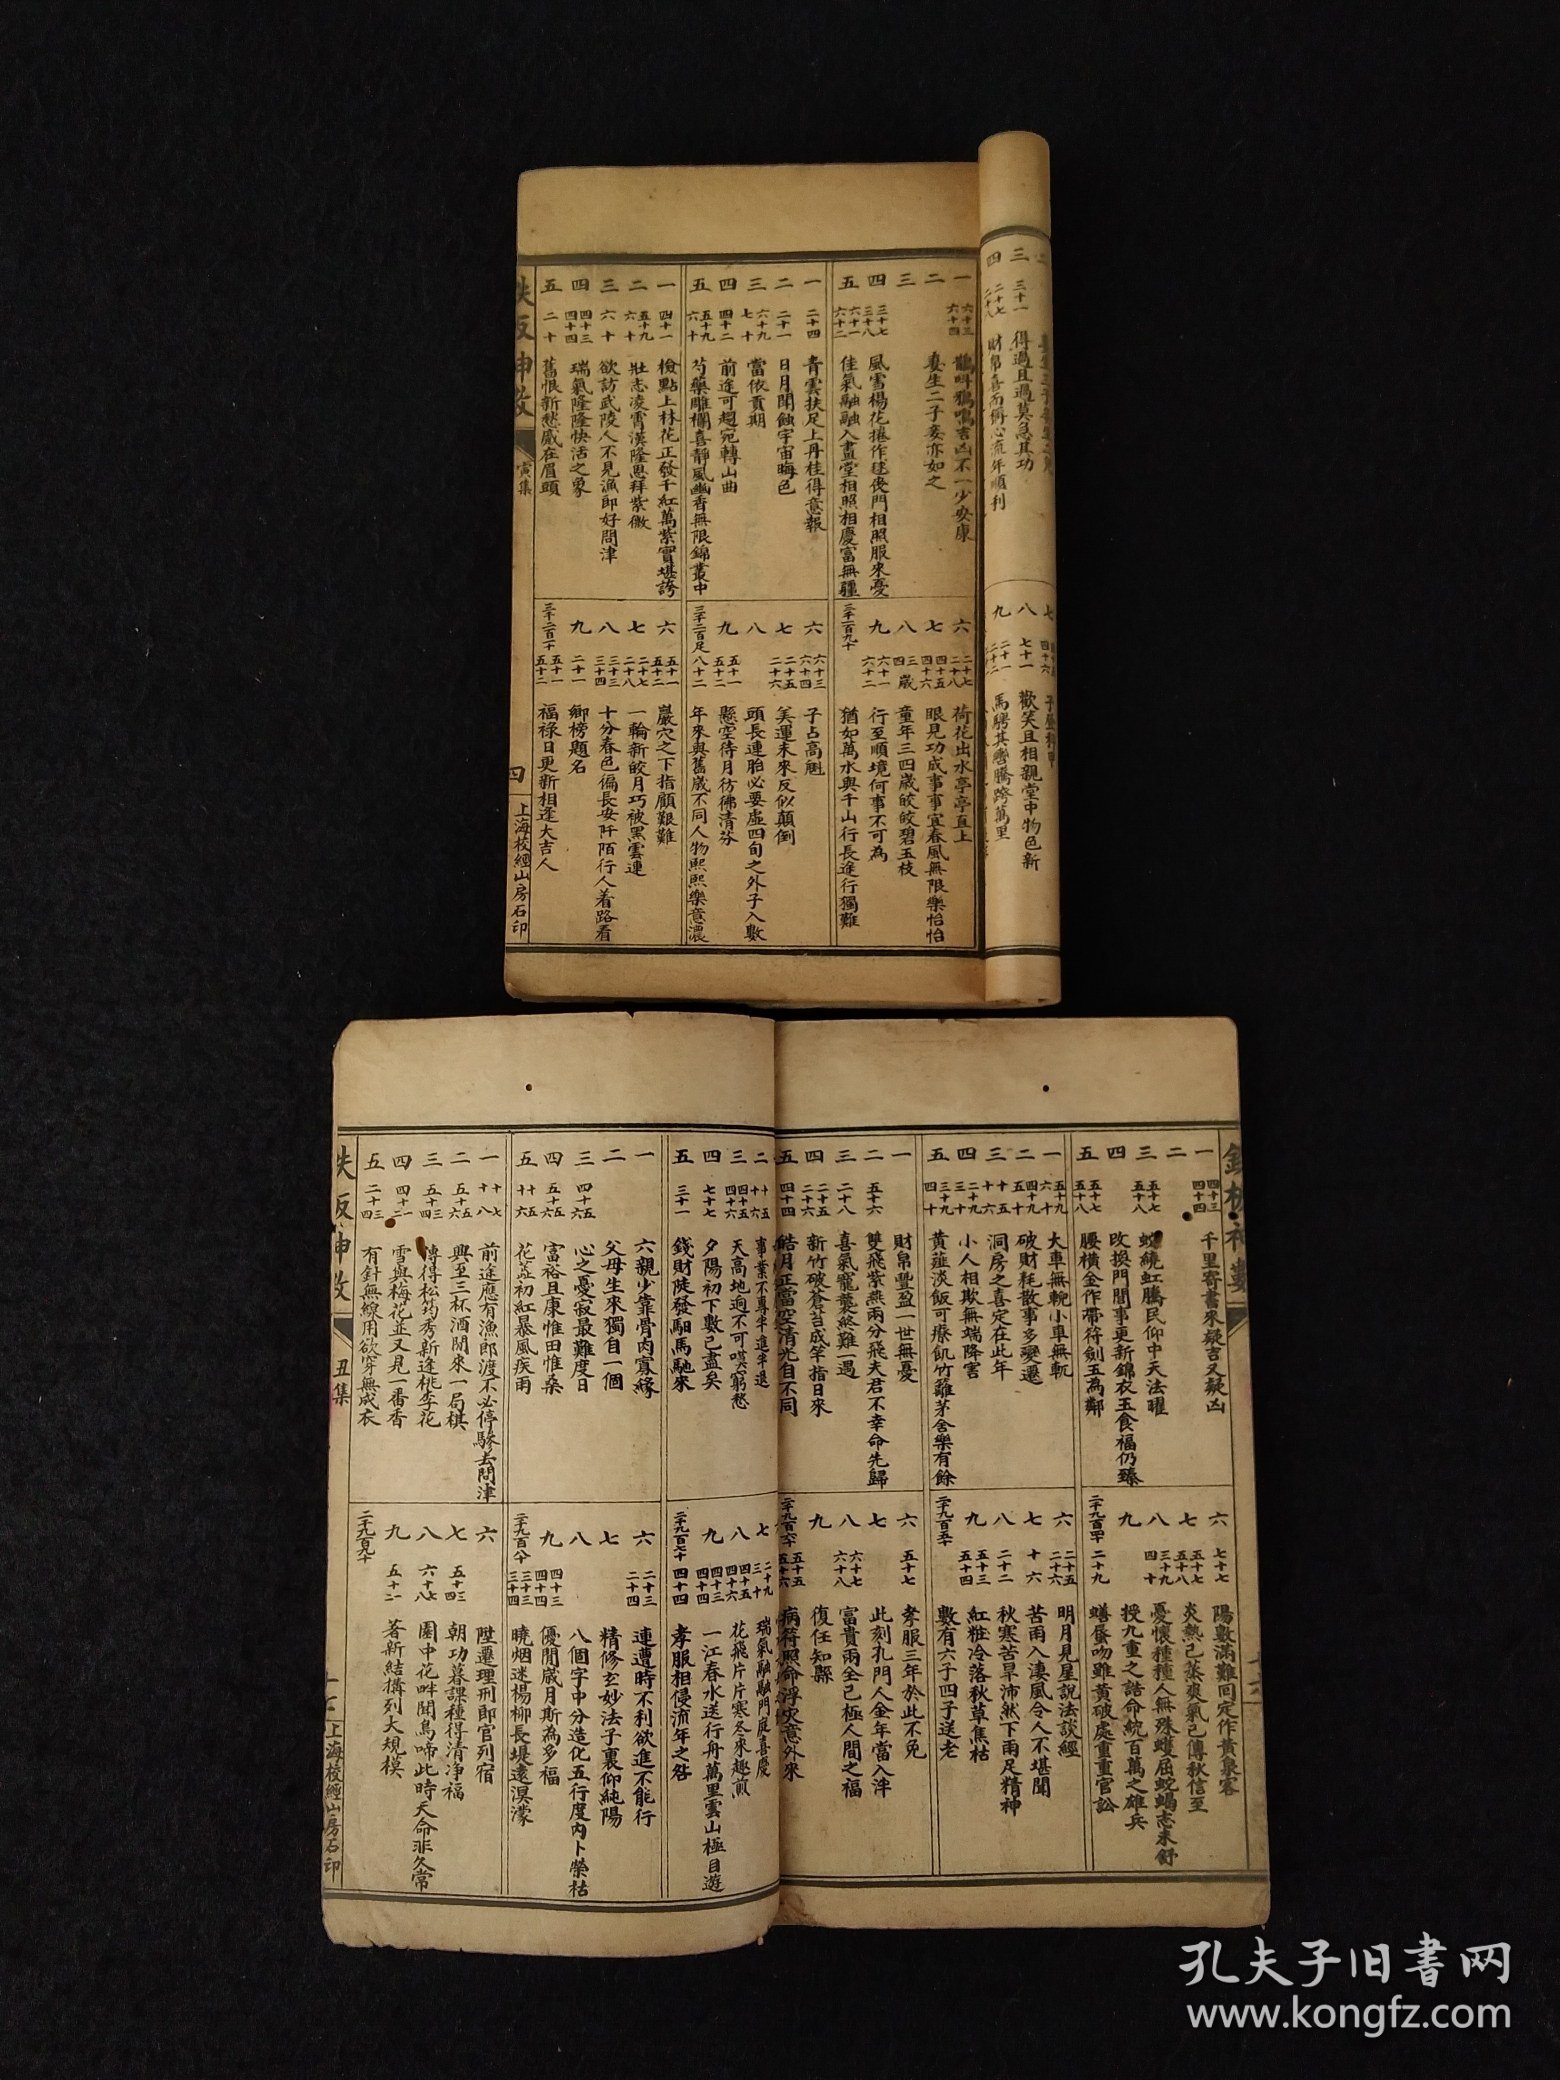 一 六十三 六十四 鵲叫鴉鳴吉凶不一少安康
二 妻生二子妾亦如之
三
四 三十七 三十八 風雪楊花捲作毬侯門相照服來憂
五 六十一 六十二 佳氣融融入畫堂相照相慶富無疆
六 二十七 二十八 荷花出水亭亭直上
七 四十五 四十六 眼見功成事事宜春風無限樂怡怡
八 三歲 四歲 童年三四歲皎皎碧玉枝
九 六十一 六十二 行至順境何事不可為
三千一百九十 猶如萬水與千山行長途行獨難
一 二十四 青雲扶足上丹桂得意報
二 二十一 日月閒蝕宇宙晦色
三 六十九 七十 當依貢期
四 四十一 四十二 前途可趨宛轉山曲
五 五十九 六十 芍藥雕欄喜靜風幽香無限錦叢中
六 六十三 六十四 子占高魁
七 二十五 二十六 美運未來反似顛倒
八 頭長連胎必要虛四旬之外子入數
九 五十一 五十二 懸空待月彷彿清芬
三千二百足 八十二 年來與舊歲不同人物熙熙樂意濃
一 四十一 檢點上林花正發千紅萬紫實堪誇
二 五十九 六十 壯志凌霄漢隆恩拜紫微
三 六十 欲訪武陵人不見漁郎好問津
四 四十三 四十四 瑞氣隆隆快活之象
五 二十 舊恨新愁慼在眉頭
六 五十一 五十二 巖穴之下指願艱難
七 二十七 二十八 一輪新皎月巧被黑雲連
八 三十三 三十四 十分春色徧長安阡陌行人着路看
九 二十一 鄉榜題名
三千二百一十 五十一 五十二 福祿日更新相逢大吉人
鉄板神数
寅集
四
上海校經山房石印
三 三十一 得過且過莫急其功
四 二十七 二十八 財帛喜而稱心流年順利
八 七十一 歡笑且相親堂中物色新
九 二十一 二十二 馬騁其轡騰跨萬里
一 四十三 四十四 千里寄書來疑吉又疑凶
二
三 五十七 五十八 虹騰民仰中天法曜
四 改換門閭事更新錦衣玉食福仍臻
五 五十七 五十八 腰橫金作帶符劍玉為鄰
六 七十七 陽數滿難回定作黃泉客
七 五十七 五十八 炎熱已蒸爽氣已傳秋信至
八 三十九 四十 憂懷種種人無殊蠖屈蛇蝎志未舒
九 授九重之誥命統百萬之雄兵
二千九百四十 二十九 蟮蜃吻雖黃破處重重官訟
一 五十九 六十 大車無輗小車無軏
二 四十 五十 破財耗散事多變遷
三 十五 十六 洞房之喜定在此年
四 二十九 三十 小人相欺無端降害
五 三十九 四十 黃虀淡飯可療飢竹籬茅舍樂有餘
六 二十五 二十六 明月見星說法談經
七 十六 苦雨入淒風令人不堪聞
八 二十二 秋寒苦旱沛然下雨足精神
九 五十三 五十四 紅粧冷落秋草焦枯
二千九百五十 數有六子四子送老
一 財帛豐盈一世無憂
二 五十六 雙飛紫燕兩分飛夫君不幸命先歸
三 二十八 喜氣寵襲終難一遇
四 二十五 二十六 新竹破蒼苔成竿指日來
五 四十四 皓月正當空清光自不同
六 五十七 孝服三年於此不免
七 此刻孔門人金年當入泮
八 六十七 六十八 富貴兩全已極人間之福
九 復任知縣
二千九百六十 五十五 五十六 病符照命浮災意外來
二 十五 十六 事業不專半進半退
三 四十五 四十六 天高地迥不可嘆窮愁
四 七十七 夕陽初下數已盡矣
五 三十一 錢財陡發駟馬馳來
七 二十九 三十 瑞氣融融門庭喜慶
八 四十五 四十六 花飛片片寒冬來趣煎
九 四十三 四十四 一江春水送行舟萬里雲山極目遊
二千九百七十 四十四 孝服相侵流年之咎
一 六親少靠骨肉寡緣
二 父母生來獨自一個
三 四十五 四十六 心之憂寂最難度日
四 五十五 五十六 富裕且康惟田惟桑
五 十五 十六 花蕊初紅暴風疾雨
六 二十三 二十四 連遭時不利欲進不能行
七 精修玄妙法子裏仰純陽
八 八個字中分造化五行度內卜榮枯
九 四十三 四十四 優閒歲月斯為多福
二千九百八十 三十三 三十四 曉烟迷楊柳長堤遠溟濛
一 十七 十八 前途應有漁郎渡不必停驂去問津
二 五十五 五十六 興至三杯酒閒來一局棋
三 五十三 五十四 博得松筠秀新逢桃李花
四 四十一 四十二 雪與梅花並又見一番香
五 二十三 二十四 有針無線用欲穿無成衣
六 陞遷理刑郎官列宿
七 五十三 五十四 朝功暮課種得清净福
八 六十七 六十八 園中花畔聞鳥啼此時天命非久常
九 五十一 五十二 著新結搆列大規模
二千九百九十
鉄板神数
丑集
上海校經山房石印
孔夫子旧书网
www.kongfz.com